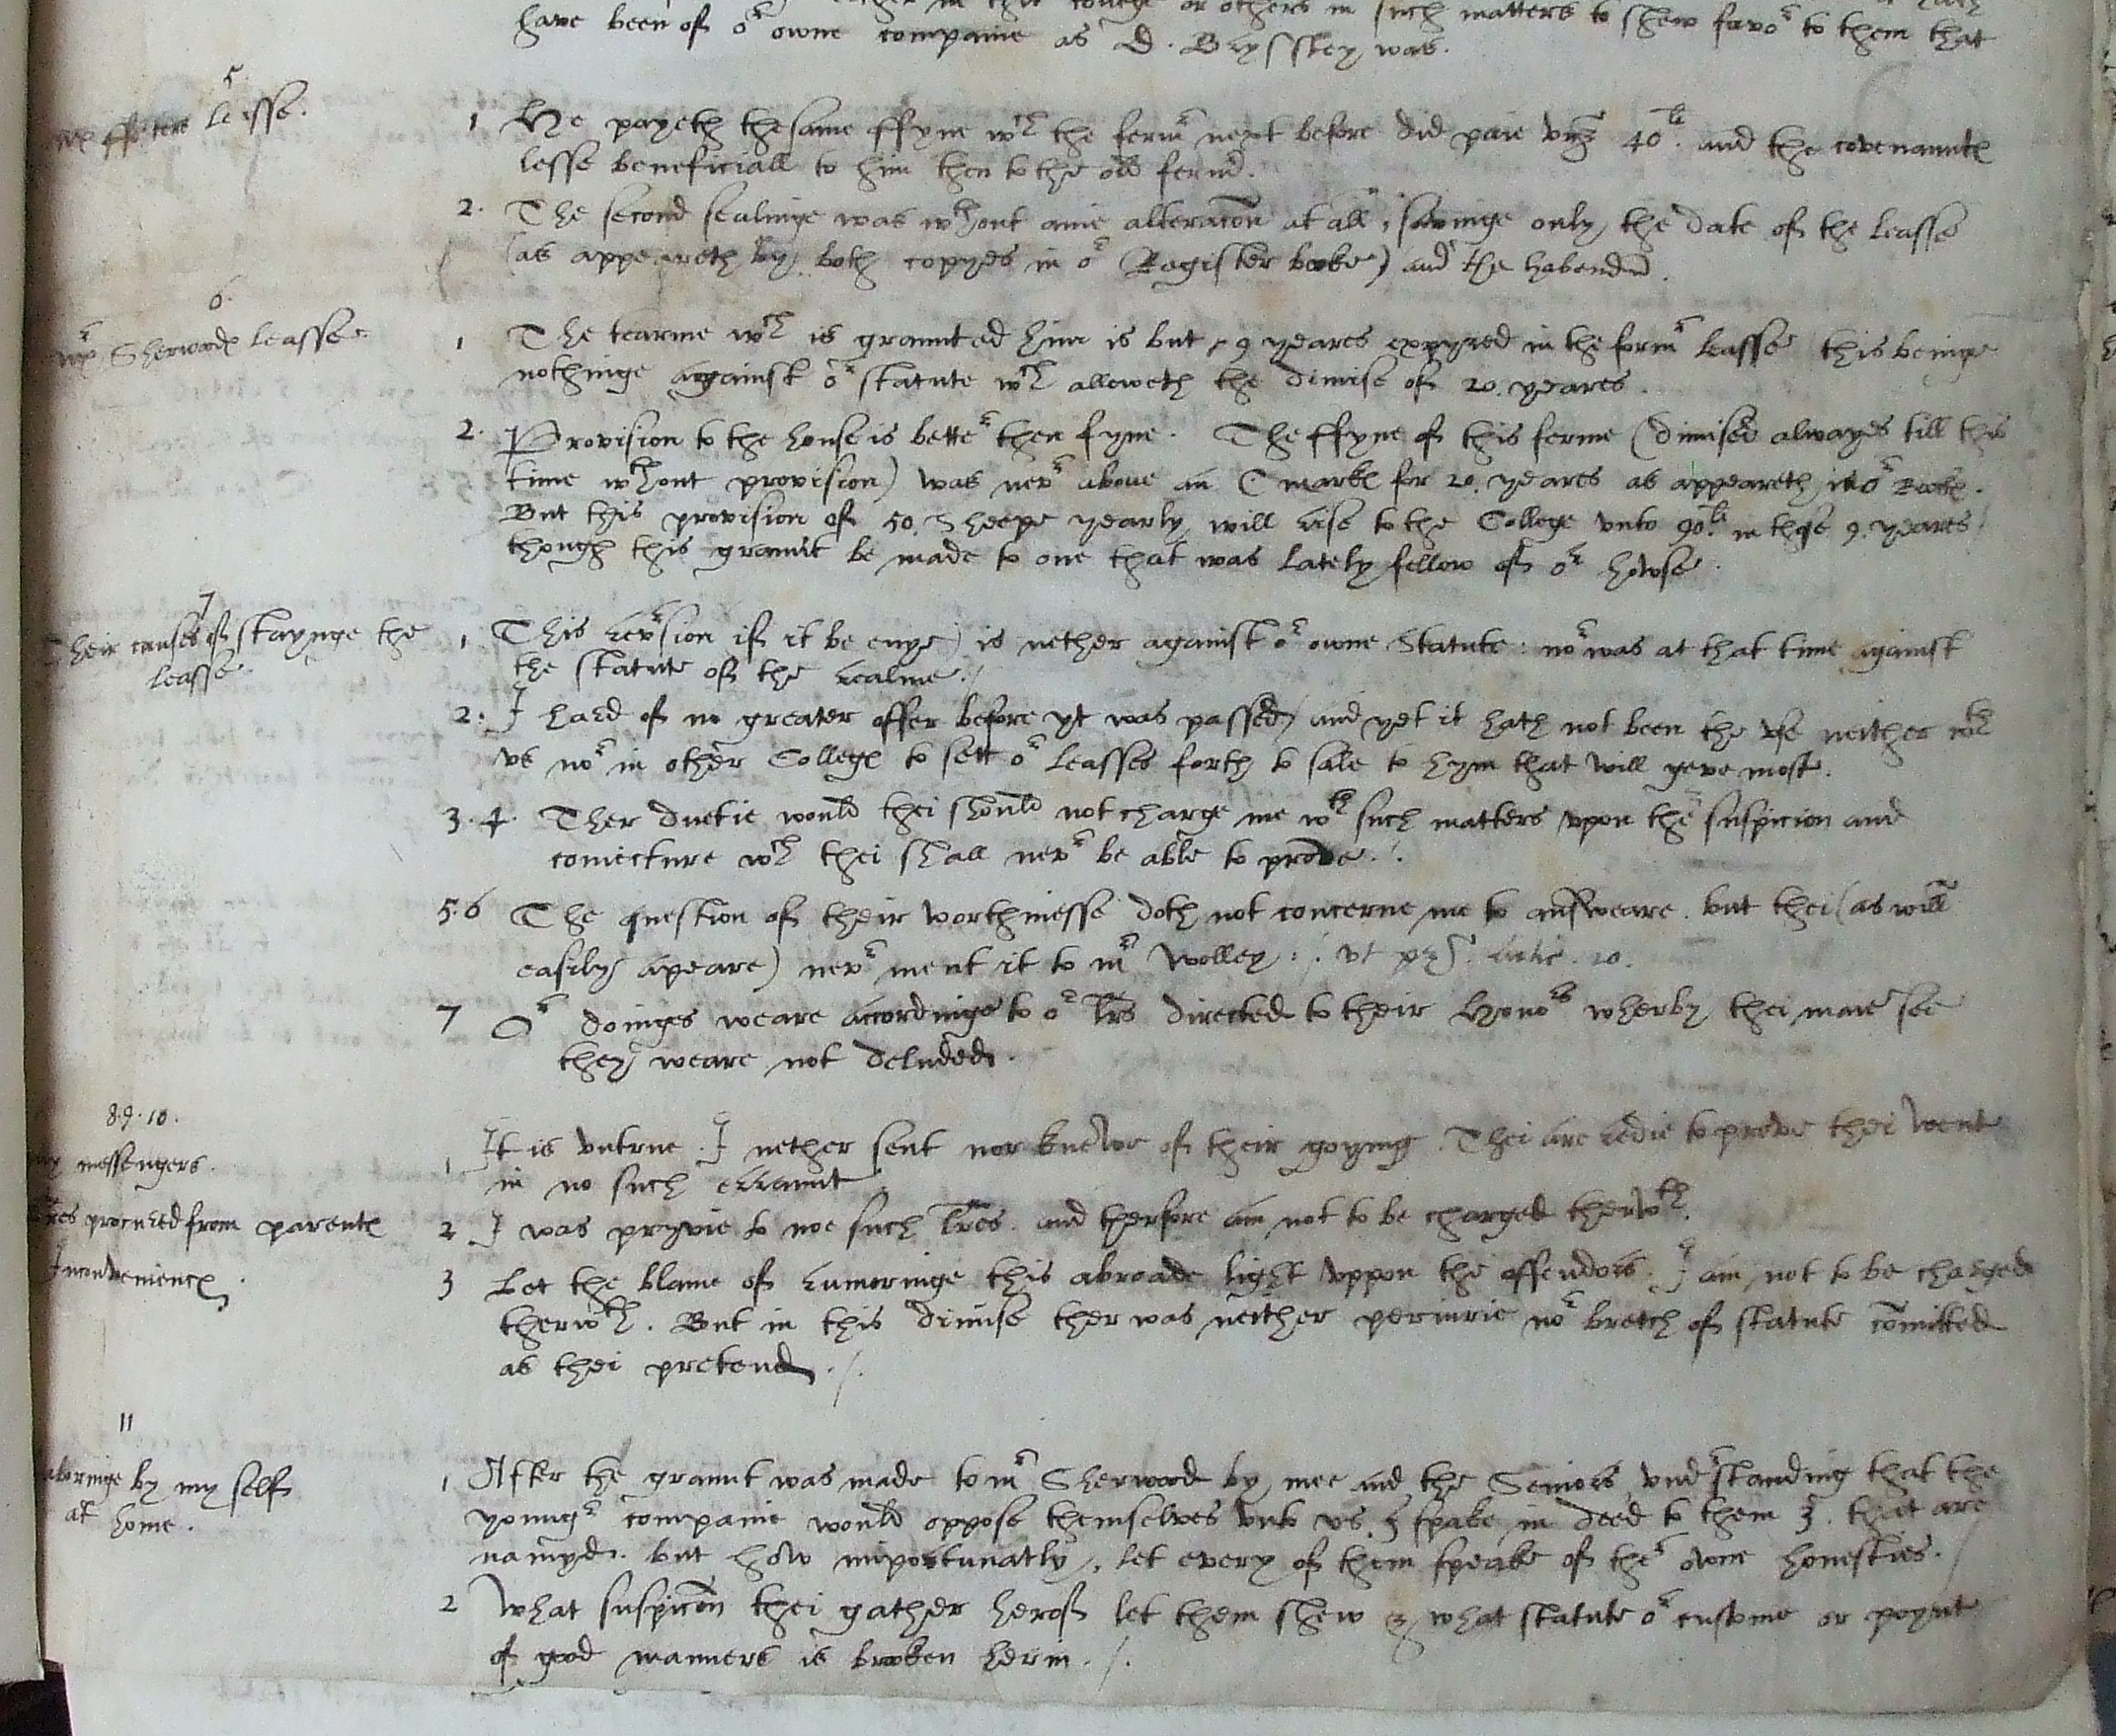 or others in such matters to shew favor to them that
have been of or owne companie as D. Blyssley was.
5
leasse.
1 He payeth the same ffyne wch the ferm next before did paie vz 40li. and the covenauntes
lesse beneficiall to him then to the old ferm.
2. The second sealinge was wthout anie alteracon at all, savinge only the date of the leasse
(as appeareth by both copyes in or Register booke) and the habend.
6.
Mr Sherwoodes leasse.
1 The tearme wch is graunted him is but 9 yeares expyred in the form leasse this beinge
nothinge against or statute wch alloweth the dimise of 20. yeares.
2. Provision to the house is better then fyne. The ffyne of this ferme (dimised alwayes till this
time wthout provision) was nevr above an C markes for 20. yeares as appeareth in or Bookes.
But this provision of 50. sheepe yearly will rise to the College unto 90li. in these 9. yeares
though this graunt be made to one that was lately fellow of or howse.
7
Their causes of stayinge the
leasse.
1 This revrsion if it be enye) is nether against or owne Statute: nor was at that time against
the statute of the realme./
2. I hard of no greater offer before yt was passed, and yet it hath not been the use neither wth
us nor in other Colleges to sett or leasses forth to sale to hym that will geve most.
3. 4. Ther duetie would thei should not charge me wth such matters upon the suspicion and
coniecture wch thei shall nevr be able to prove./.
5. 6 The question of their worthinesse doth not concerne me to answeare. but thei (as will
easily apeare) nevr ment it to mr Wolley:/. ut Artic. 10.
7 Or doinges weare accordinge to or lrs directed to their Honors wherby thei maie see
they weare not deluded.
8. 9. 10.
my messengers.
lres procured from parentes
Inconveniences.
1 It is untrue. I nether sent nor knewe of their goying. Thei are redie to prove thei went
in no such erraunt
2 I was pryvie to noe such lres. and therfore am not to be charged therwth.
3 Let the blame of rumoringe this abroade light uppon the offendors. I am not to be charged
therwth. But in this dimise ther was neither periurie nor bretch of statute comitted
as thei pretend./.
11
laboringe by my self
at home.
1 After the graunt was made to mr Sherwood by mee and the Seniors, undrstanding that the
youngr companie would oppose themselves unto us, I spake in deed to them 3. that are
namyd. but how importunatly, let every of them speake of ther owne honesties.
2 What suspicon thei gather herof let them shew & what statute or custome or poynte
of good manners is broken herin./.